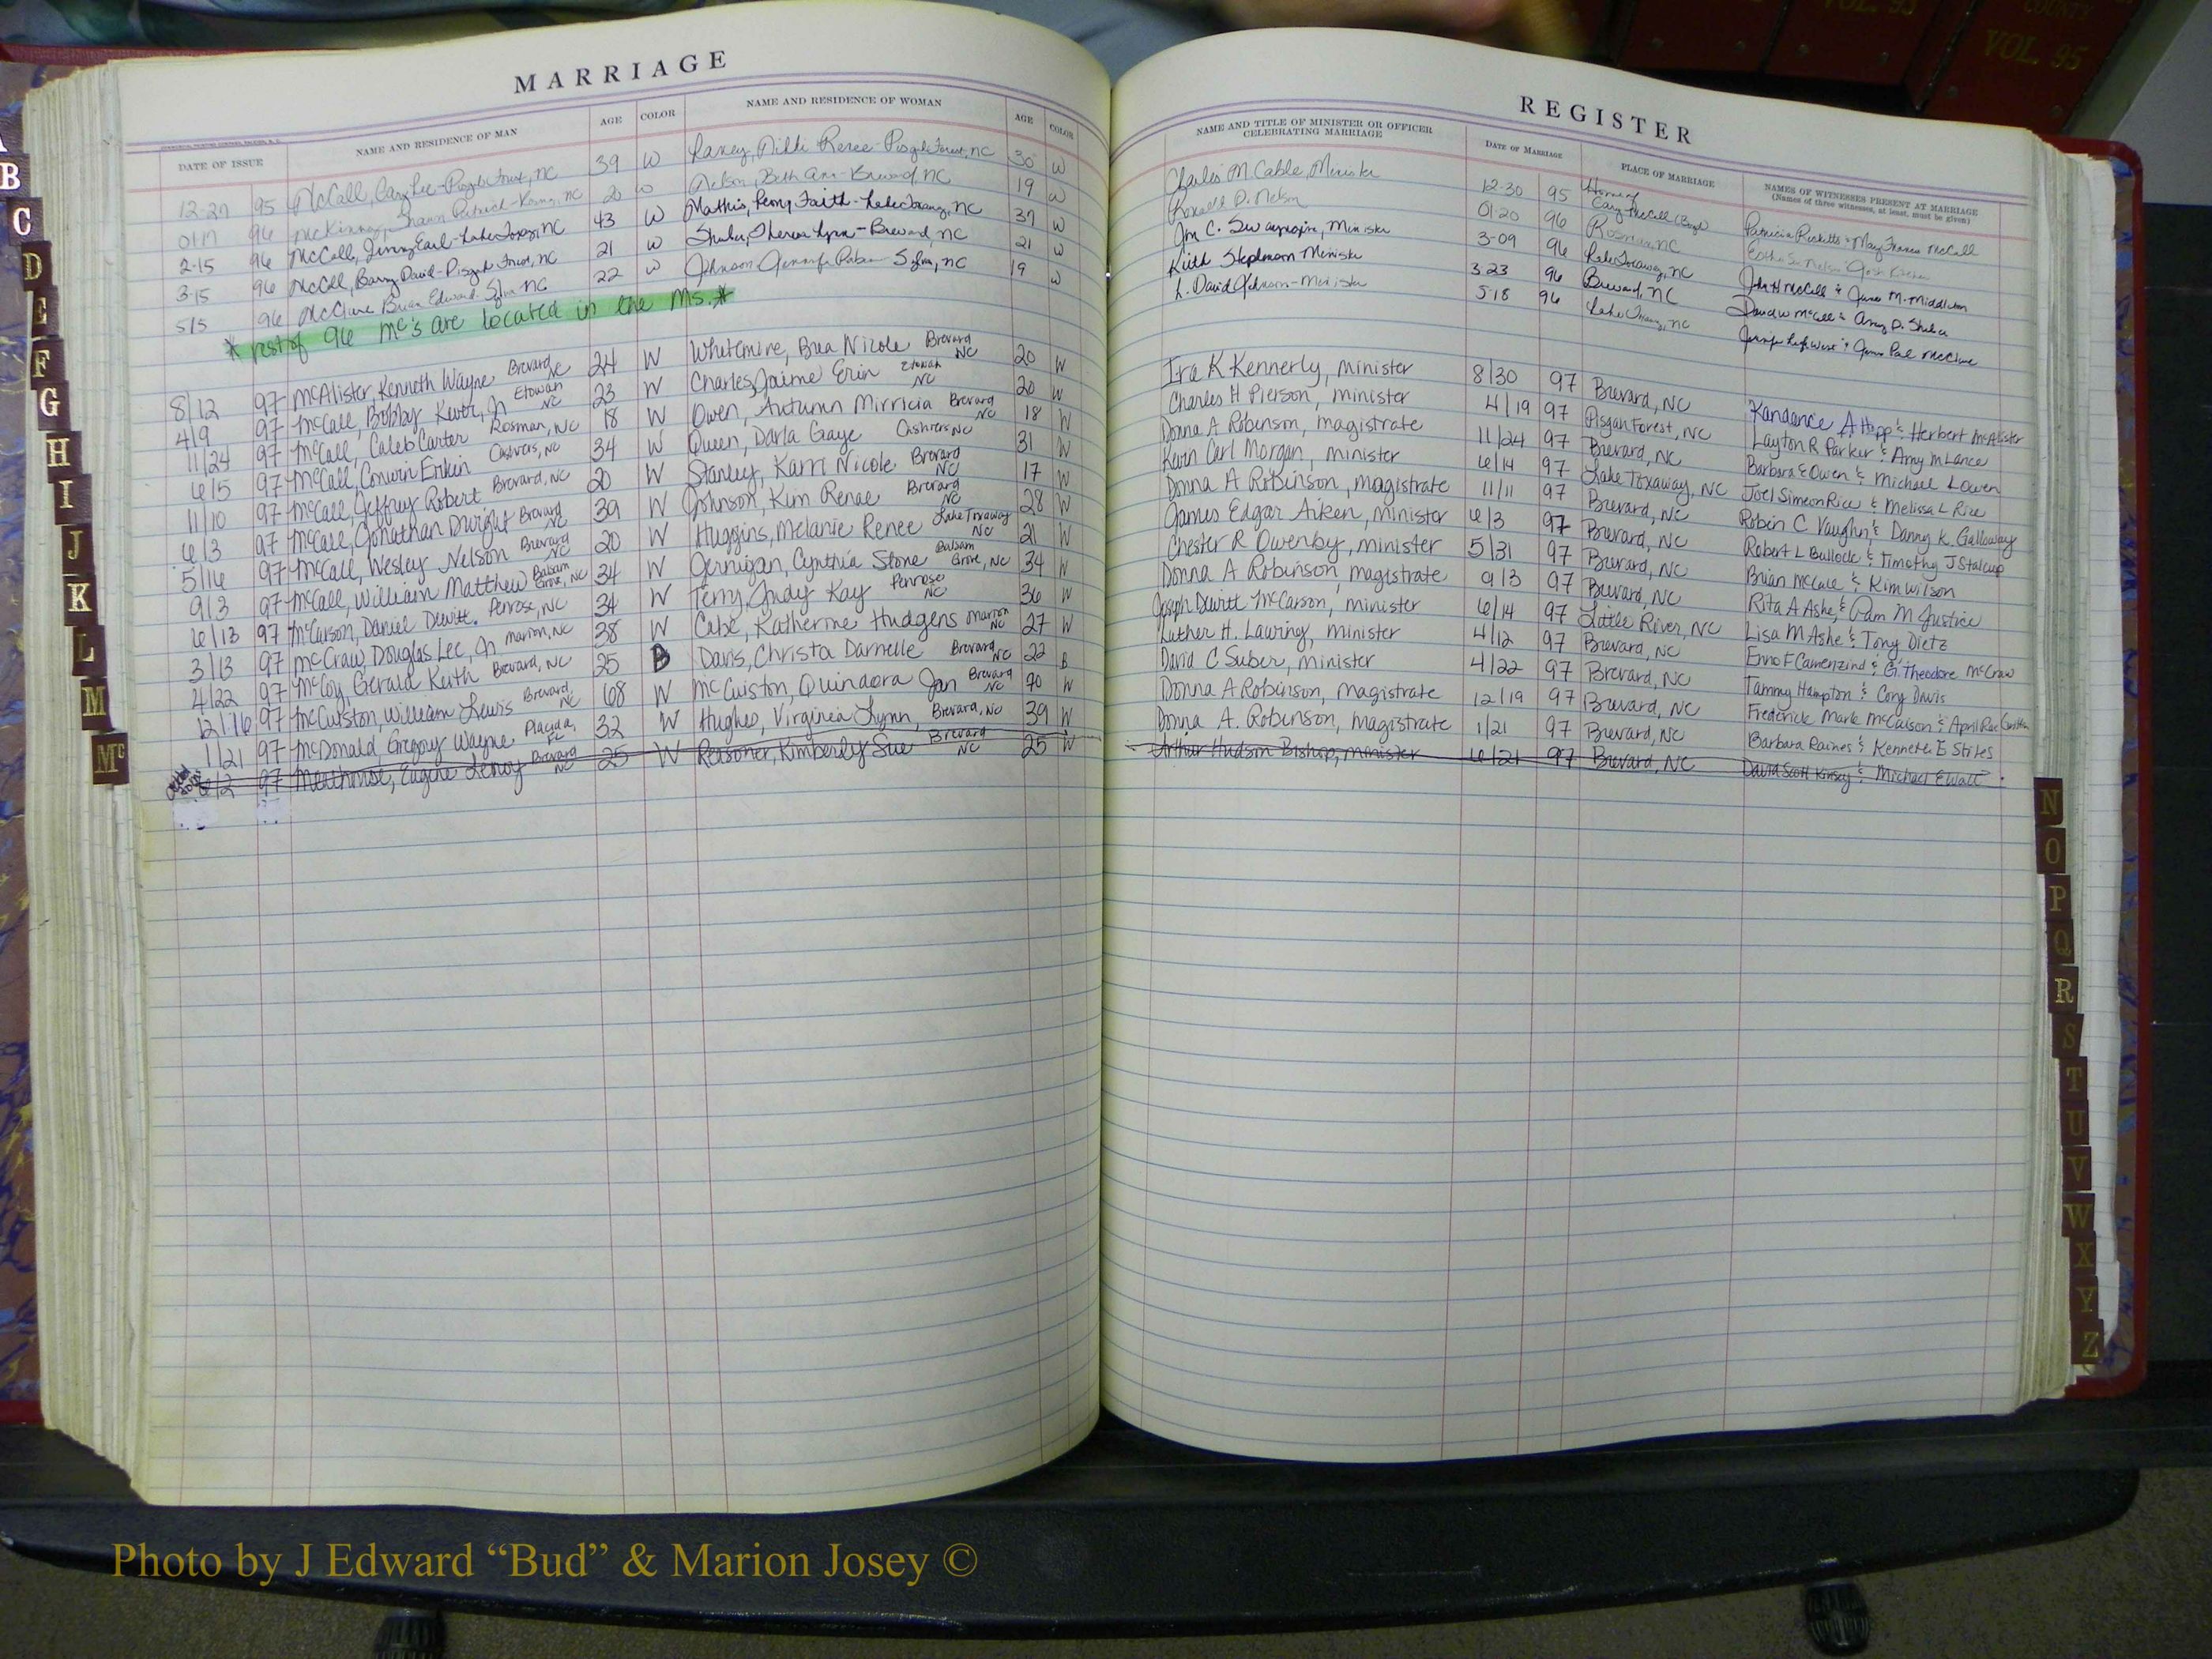 COUNTY
VOL. 95
VOL. 95
MARRIAGE
DATE OF ISSUE NAME AND RESIDENCE OF MAN AGE COLOR NAME AND RESIDENCE OF WOMAN AGE COLOR
12-27 95 McCall, Gary Lee-Pisgah Forest, NC 39 W Nikki Renee-Pisgah Forest, NC 30 W
01/17 96 McKinney, Shawn Patrick- NC 20 W Nelson, Beth Ann-Brevard, NC 19 W
2-15 96 McCall, Jimmy Earl-Lake Toxaway, NC 43 W Mathis, Penny Faith-Lake Toxaway, NC 37 W
3-15 96 McCall, Barry David-Pisgah Forest, NC 21 W Shuler, Theresa Lynn-Brevard, NC 21 W
5/5 96 McClure Brian Edward. Sylva NC 22 W Johnson Jennifer Sylva, NC 19 W
* rest of 96 Mc's are located in the Ms. *
8/12 97 McAlister, Kenneth Wayne Brevard NC 24 W Whitmire, Brea Nicole Brevard NC 20 W
4/9 97 McCall, Bobby Keith, Jr Etowah NC 23 W Charles, Jaime Erin Etowah NC 20 W
11/24 97 McCall, Caleb Carter Rosman, NC 18 W Owen, Autumn Mirricia Brevard NC 18 W
6/5 97 McCall, Conwin Erskin Cashiers, NC 34 W Queen, Darla Gaye Cashiers NC 31 W
11/10 97 McCall, Jeffrey Robert Brevard, NC 20 W Stanley, Karri Nicole Brevard NC 17 W
6/3 97 McCall, Jonathan Dwight Brevard NC 39 W Johnson, Kim Renae Brevard NC 28 W
5/16 97 McCall, Wesley Nelson Brevard NC 20 W Huggins, Melanie Renee Lake Toxaway NC 21 W
9/3 97 McCall, William Matthew Balsam Grove, NC 34 W Jernigan, Cynthia Stone Balsam Grove, NC 34 W
6/13 97 McCarson, Daniel Dewitt. Penrose, NC 34 W Terry, Judy Kay Penrose NC 36 W
3/13 97 McCraw, Douglas Lee, Jr Marion, NC 38 W Cabe, Katherine Hudgens Marion NC 27 W
4/22 97 McCoy Gerald Keith Brevard, NC 25 B Davis, Christa Darnelle Brevard, NC 22 B
12/16 97 McCuiston, William Lewis Brevard, NC 68 W McCuiston, Quindora Jan Brevard NC 70 W
1/21 97 McDonald Gregory Wayne Placida, FL 32 W Hughes, Virginia Lynn, Brevard, NC 39 W
6/2 97 Eugene Leroy Brevard NC 25 W Reasoner, Kimberly Sue Brevard NC 25 W
REGISTER
NAME AND TITLE OF MINISTER OR OFFICER CELEBRATING MARRIAGE DATE OF MARRIAGE PLACE OF MARRIAGE NAMES OF WITNESSES PRESENT AT MARRIAGE
(Names of three witnesses, at least, must be given)
Charles M. Cable, Minister 12-30 95 Home of Gary McCall Patricia Ricketts & Mary Frances McCall
Ronald D. Nelson 01-20 96 Rosman, NC
Jim C. Swangim, Minister 3-09 96 Lake Toxaway, NC John H McCall & James M. Middleton
Keith Stephenson Minister 3-23 96 Brevard, NC David W McCall & Amy D. Shuler
L. David Johnson-Minister 5-18 96 Lake Toxaway, NC James Paul McClure
Ira K Kennerly, minister 8/30 97 Brevard, NC Kandance A Hipp & Herbert McAlister
Charles H Pierson, minister 4/19 97 Pisgah Forest, NC Layton R Parker & Amy M Lance
Donna A Robinson, magistrate 11/24 97 Brevard, NC Barbara E Owen & Michael L Owen
Kevin Carl Morgan, minister 6/14 97 Lake Toxaway, NC Joel Simeon Rice & Melissa L Rice
Donna A Robinson, magistrate 11/11 97 Brevard, NC Robin C Vaughn & Danny K. Galloway
James Edgar Aiken, minister 6/3 97 Brevard, NC Robert L Bullock & Timothy J Stalcup
Chester R Owenby, minister 5/31 97 Brevard, NC Brian McCall & Kim Wilson
Donna A Robinson, magistrate 9/3 97 Brevard, NC Rita A Ashe & Pam M Justice
Joseph Dewitt McCarson, minister 6/14 97 Little River, NC Lisa M Ashe & Tony Dietz
Luther H. Lawing, minister 4/12 97 Brevard, NC Enno F Camenzind & G. Theodore McCraw
David C Suber, minister 4/22 97 Brevard, NC Tammy Hampton & Cory Davis
Donna A Robinson, magistrate 12/19 97 Brevard, NC Frederick Mark McCuison & April Rae
Donna A. Robinson, magistrate 1/21 97 Brevard, NC Barbara Raines & Kenneth E Stites
Arthur Hudson Bishop, minister 6/21 97 Brevard, NC David Scott Kinsey & Michael E Watt
B
C
D
E
F
G
H
I
J
K
L
M
Mc
N
O
P
Q
R
S
T
U
V
W
X
Y
Z
Photo by J Edward “Bud” & Marion Josey ©